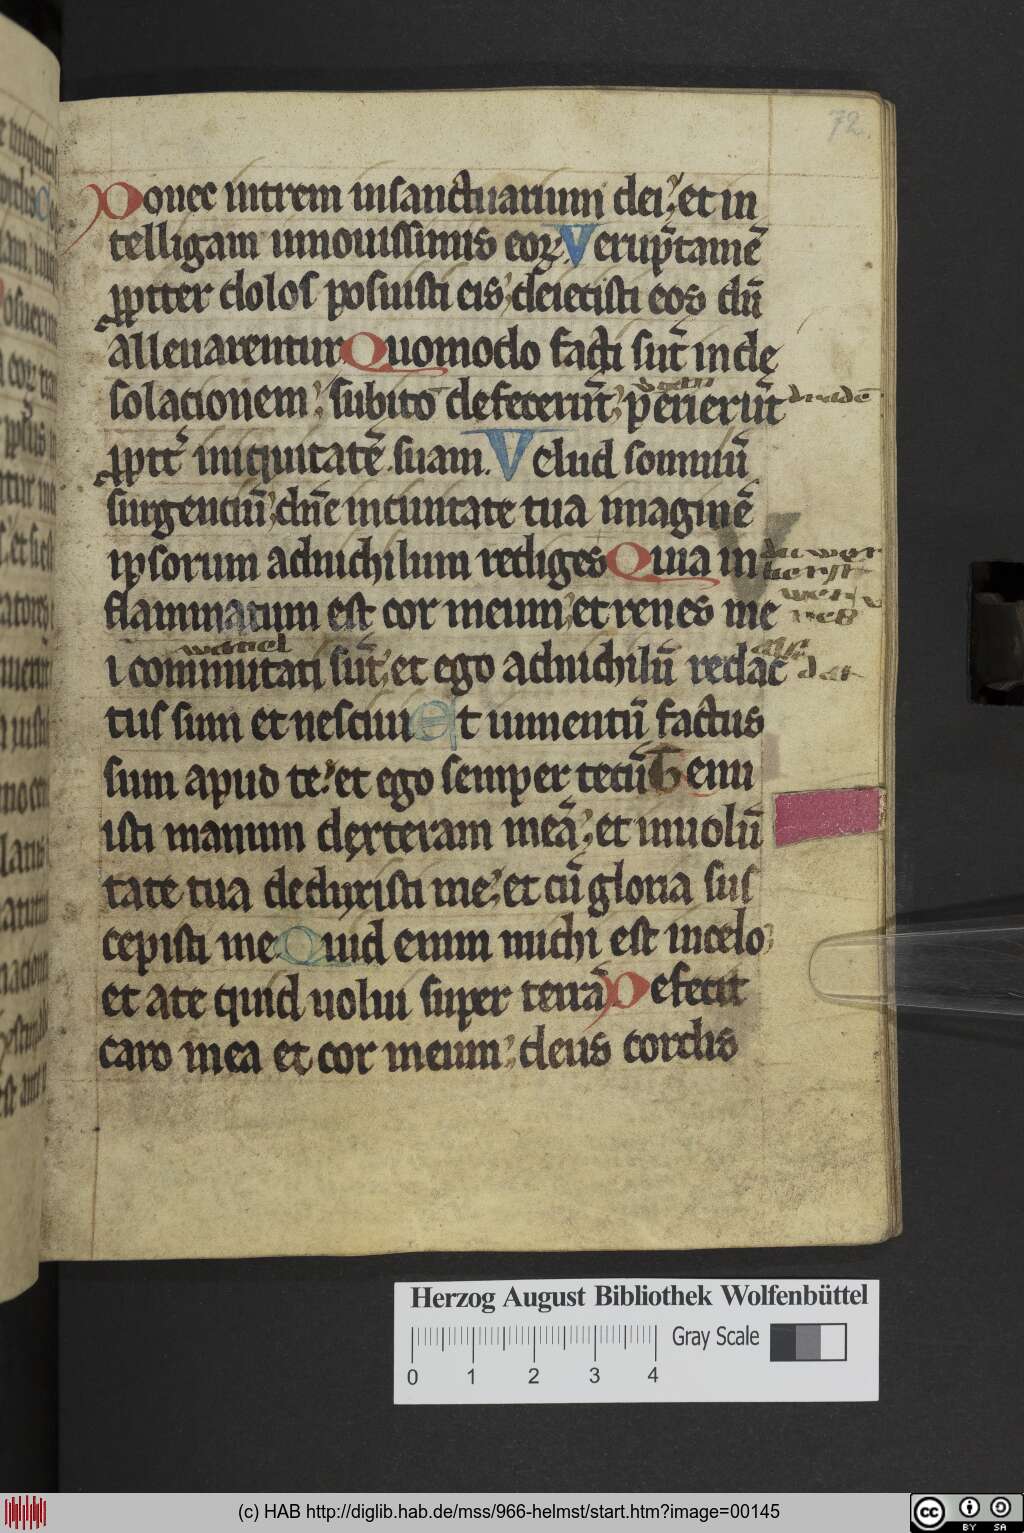 72.
Donec intrem in sanctuarium dei; et in
telligam in nouissimis eoꝝ Verūptamē
ꝓpter dolos posuisti eis; deiecisti eos dū
alleuarentur Quomodo facti sūt in de
solacionem; subito defecerūt; perierūt
ꝓpt̄ iniquitatē suam. Velud somniū
surgenciū; dn̄e in ciuitate tua imaginē
ipsorum adnichilum rediges Quia in
flammatum est cor meum; et renes me
i commutati sūt; et ego adnichilū redac
tus sum et nesciui et iumentū factus
sum apud te; et ego semper tecū Tenu
isti manum dexteram meā; et in uolū
tate tua deduxisti me; et cū gloria sus
cepisti me Quid enim michi est in celo;
et a te quid uolui super terrā Defecit
caro mea et cor meum; deus cordis
Herzog August Bibliothek Wolfenbüttel
0 1 2 3 4 Gray Scale
(c) HAB http://diglib.hab.de/mss/966-helmst/start.htm?image=00145
cc BY SA